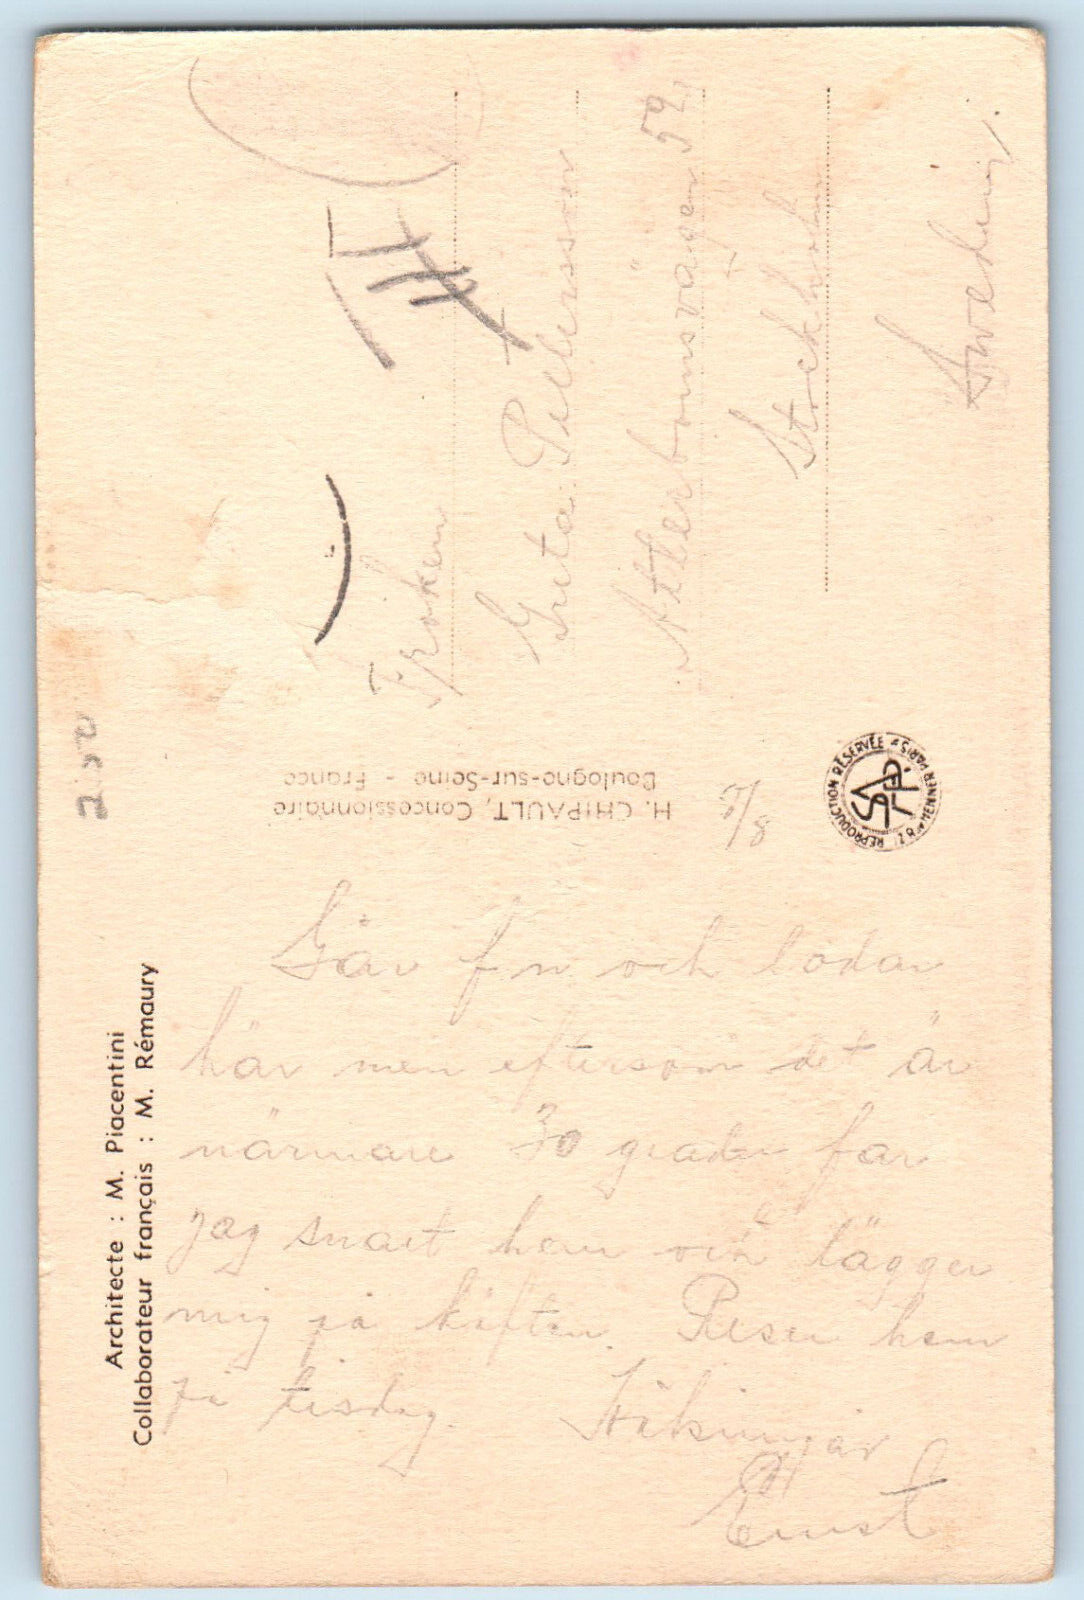 Architecte : M. Piacentini
Collaborateur français : M. Rémaury
H. CHIPAULT, Concessionnaire
Boulogne-sur-Seine - France
REPRODUCTION RÉSERVÉE
PARIS
SPAP
7/8
Fröken
Greta Pettersson
Atterbomsvägen 52
Stockholm
Sweden
Går f n och lodar
här men eftersom det är
närmare 30 grader far
jag snart hem och lägger
mig på käften. Reser hem
på tisdag. Hälsningar
Ernst
2.50